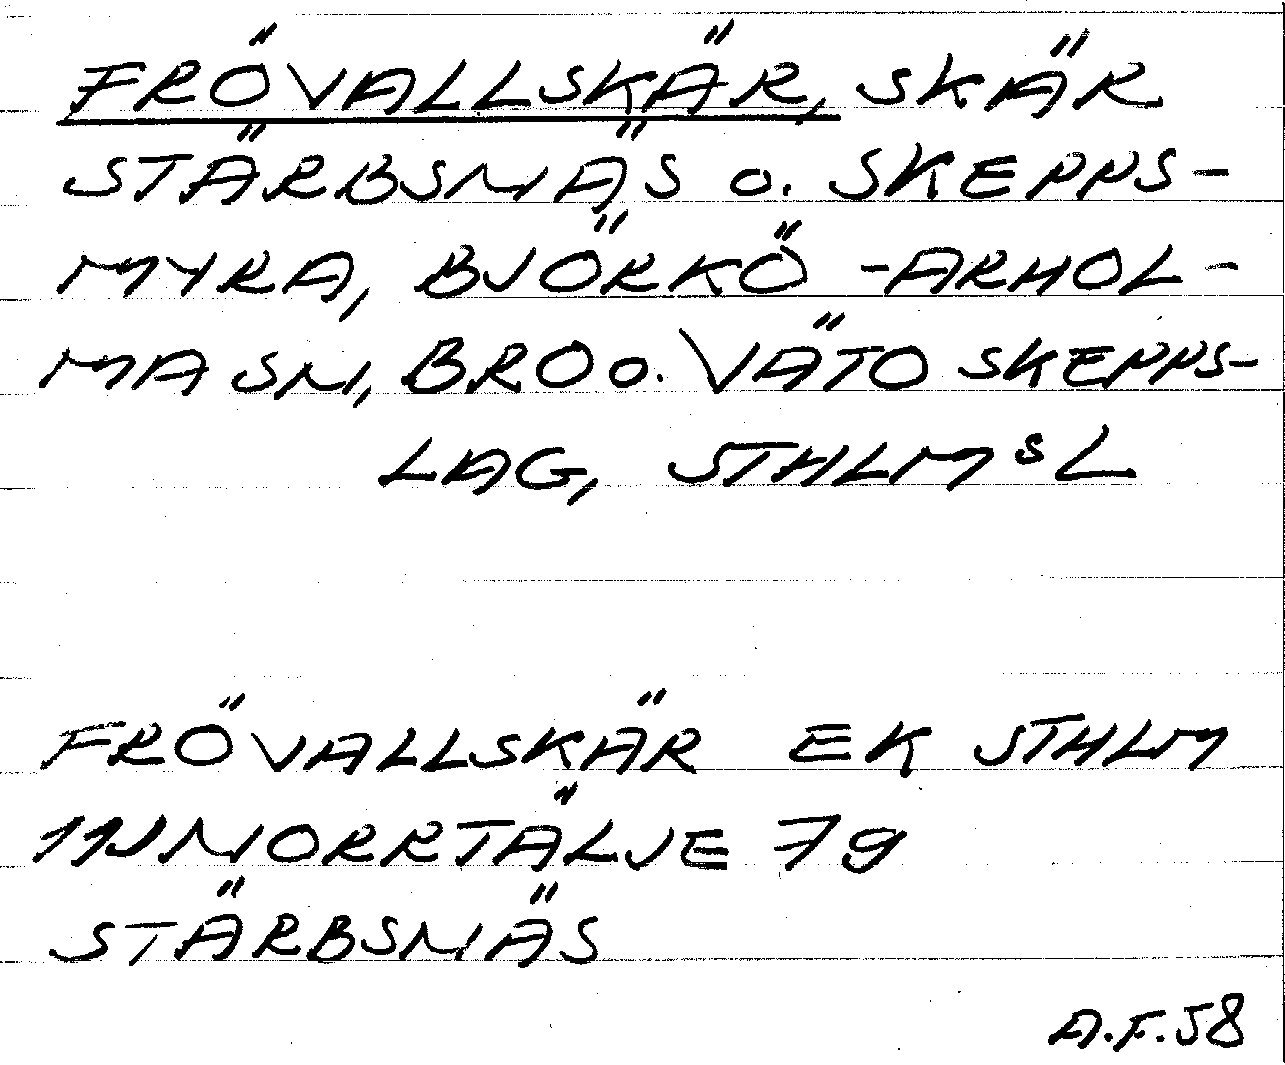 FRÖVALLSKÄR, SKÄR
STÄRBSNÄS o. SKEPPS-
MYRA, BJÖRKÖ-ARHOL-
MA SN, BRO o. VÄTO SKEPPS-
LAG, STHLMS L
FRÖVALLSKÄR EK STHLM
11J NORRTÄLJE 79
STÄRBSNÄS
A.F. 58